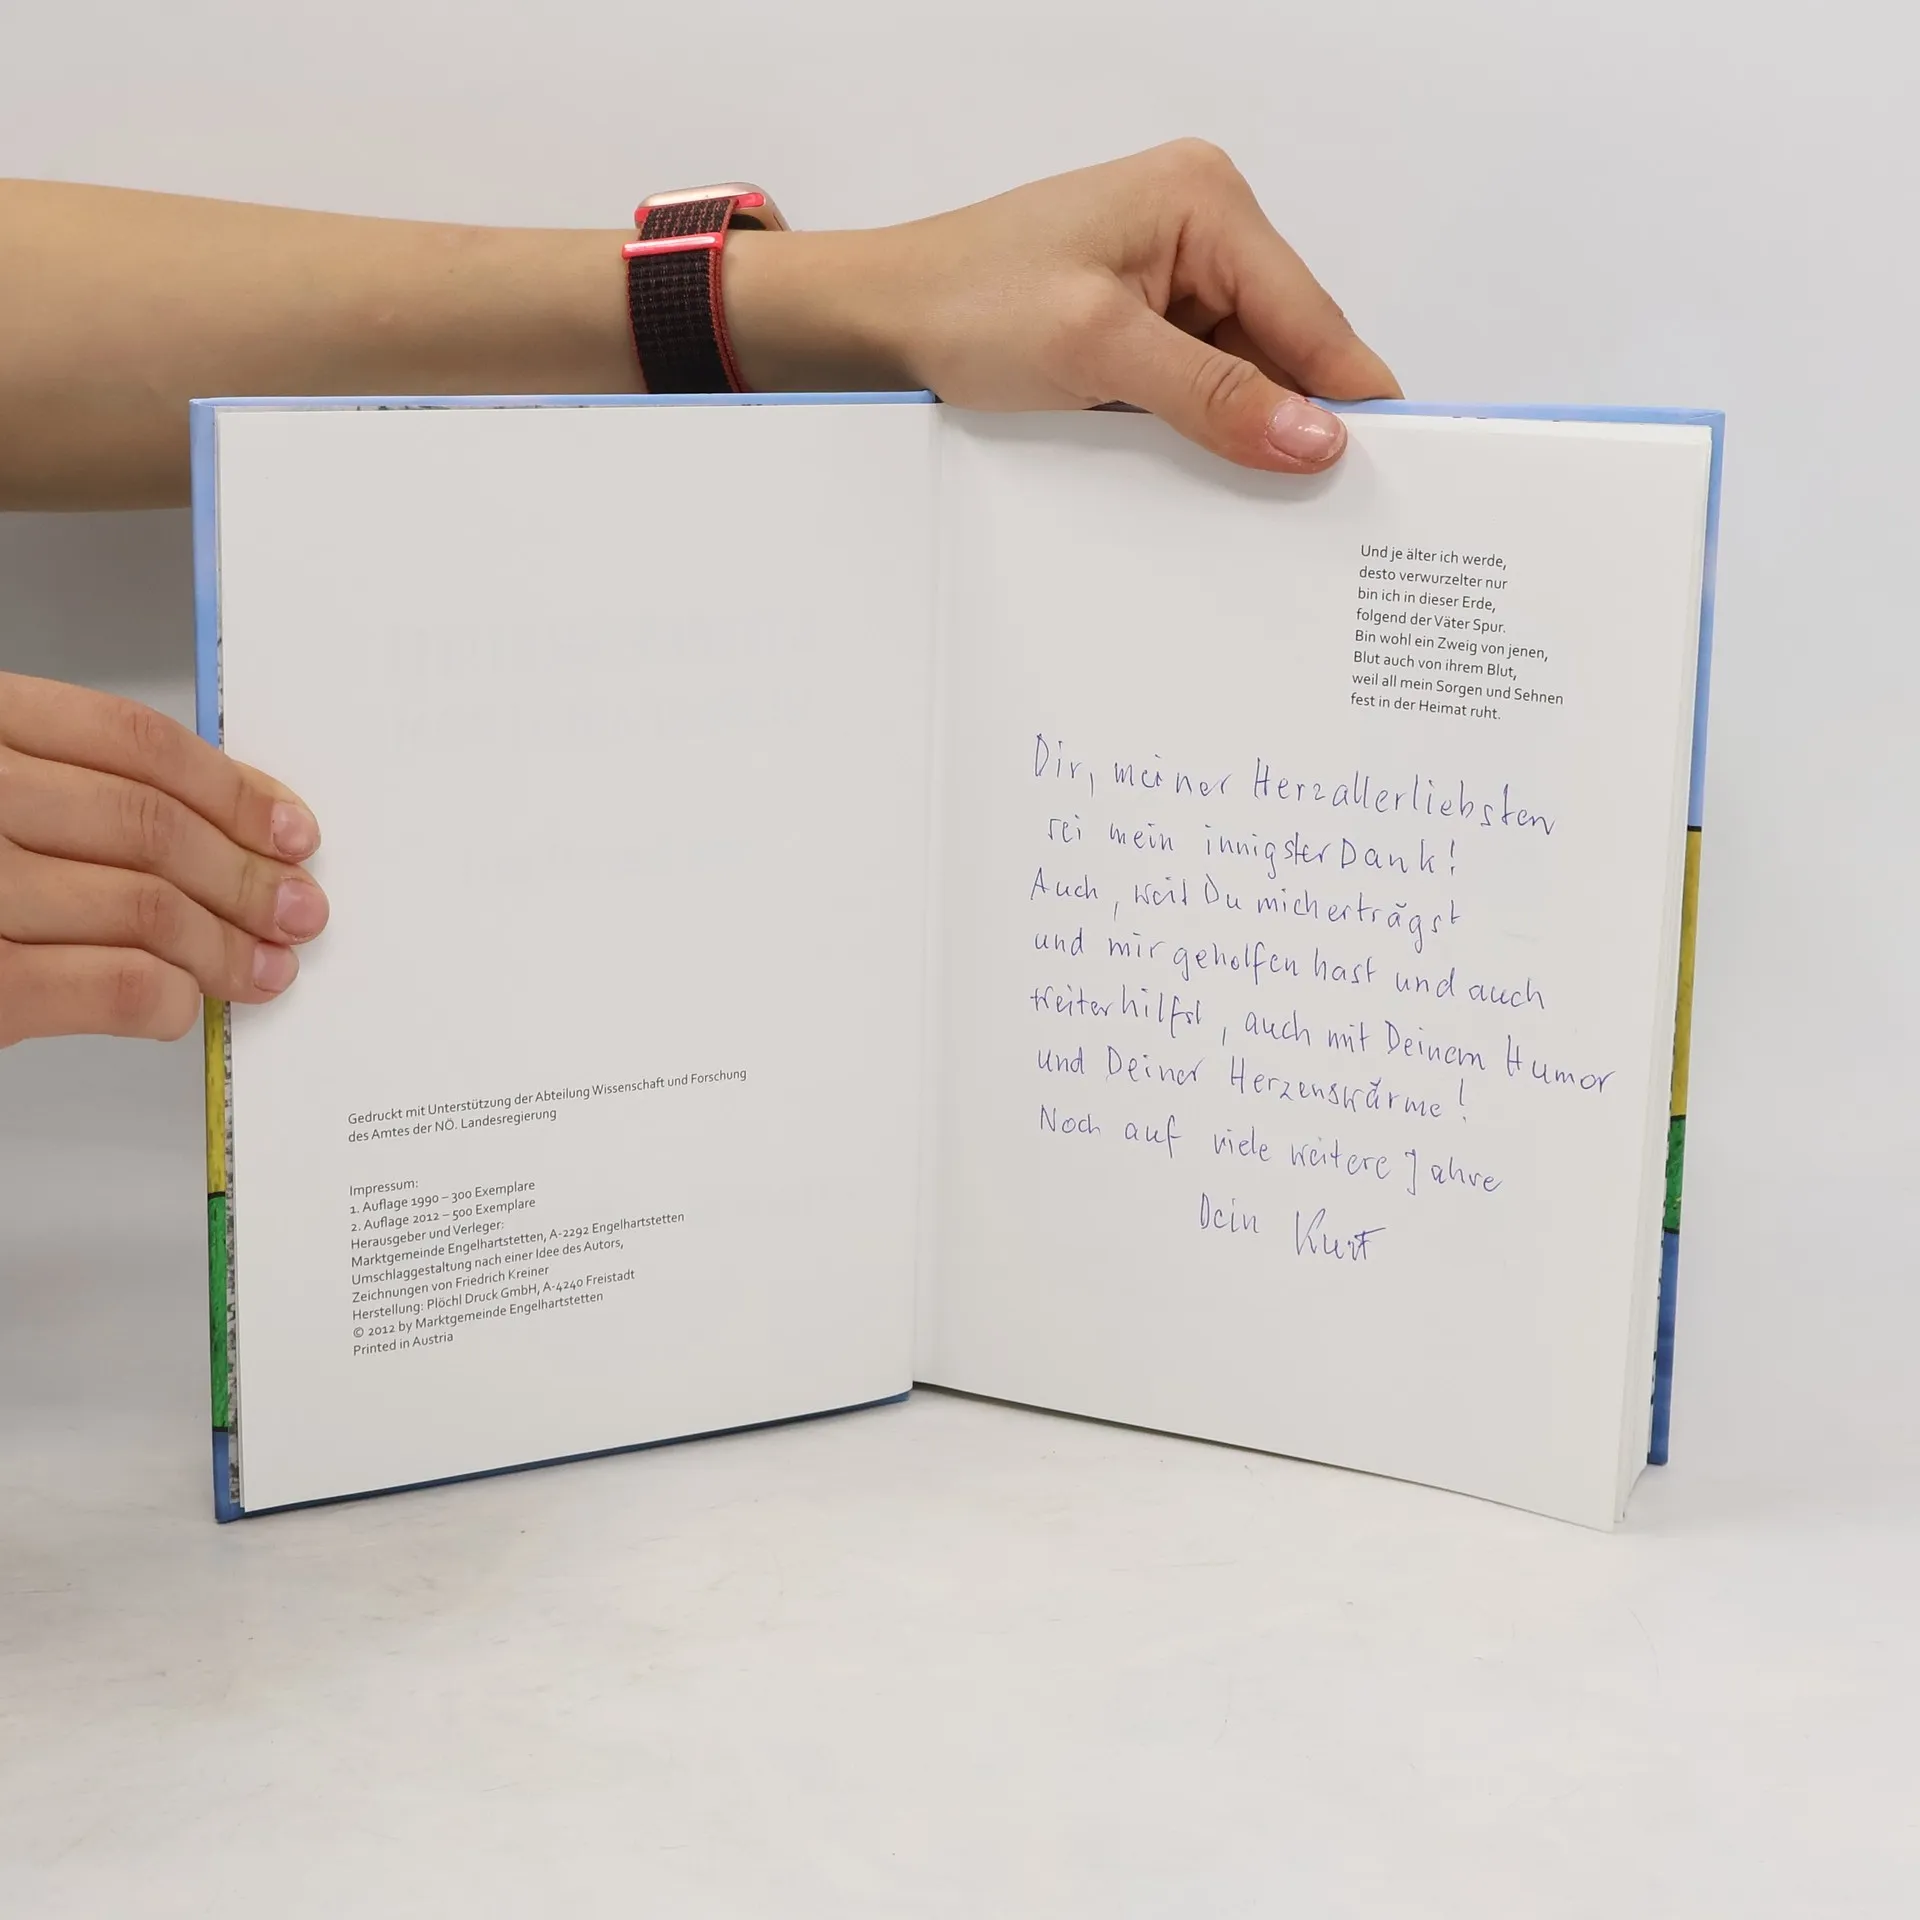 Gedruckt mit Unterstützung der Abteilung Wissenschaft und Forschung
des Amtes der NÖ. Landesregierung
Impressum:
1. Auflage 1990 – 300 Exemplare
2. Auflage 2012 – 500 Exemplare
Herausgeber und Verleger:
Marktgemeinde Engelhartstetten, A-2292 Engelhartstetten
Umschlaggestaltung nach einer Idee des Autors,
Zeichnungen von Friedrich Kreiner
Herstellung: Plöchl Druck GmbH, A-4240 Freistadt
© 2012 by Marktgemeinde Engelhartstetten
Printed in Austria
Und je älter ich werde,
desto verwurzelter nur
bin ich in dieser Erde,
folgend der Väter Spur.
Bin wohl ein Zweig von jenen,
Blut auch von ihrem Blut,
weil all mein Sorgen und Sehnen
fest in der Heimat ruht.
Dir, meiner Herzallerliebsten
sei mein innigster Dank!
Auch, weil Du mich erträgst
und mir geholfen hast und auch
weiterhilfst, auch mit Deinem Humor
und Deiner Herzenswärme!
Noch auf viele weitere Jahre
Dein Kurt